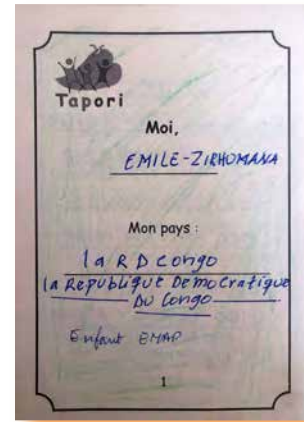 Tapori
Moi,
EMILE-ZIRHOMANA
Mon pays :
la RD Congo
la Republique Democratique
Du Congo
Enfant EMAP
1